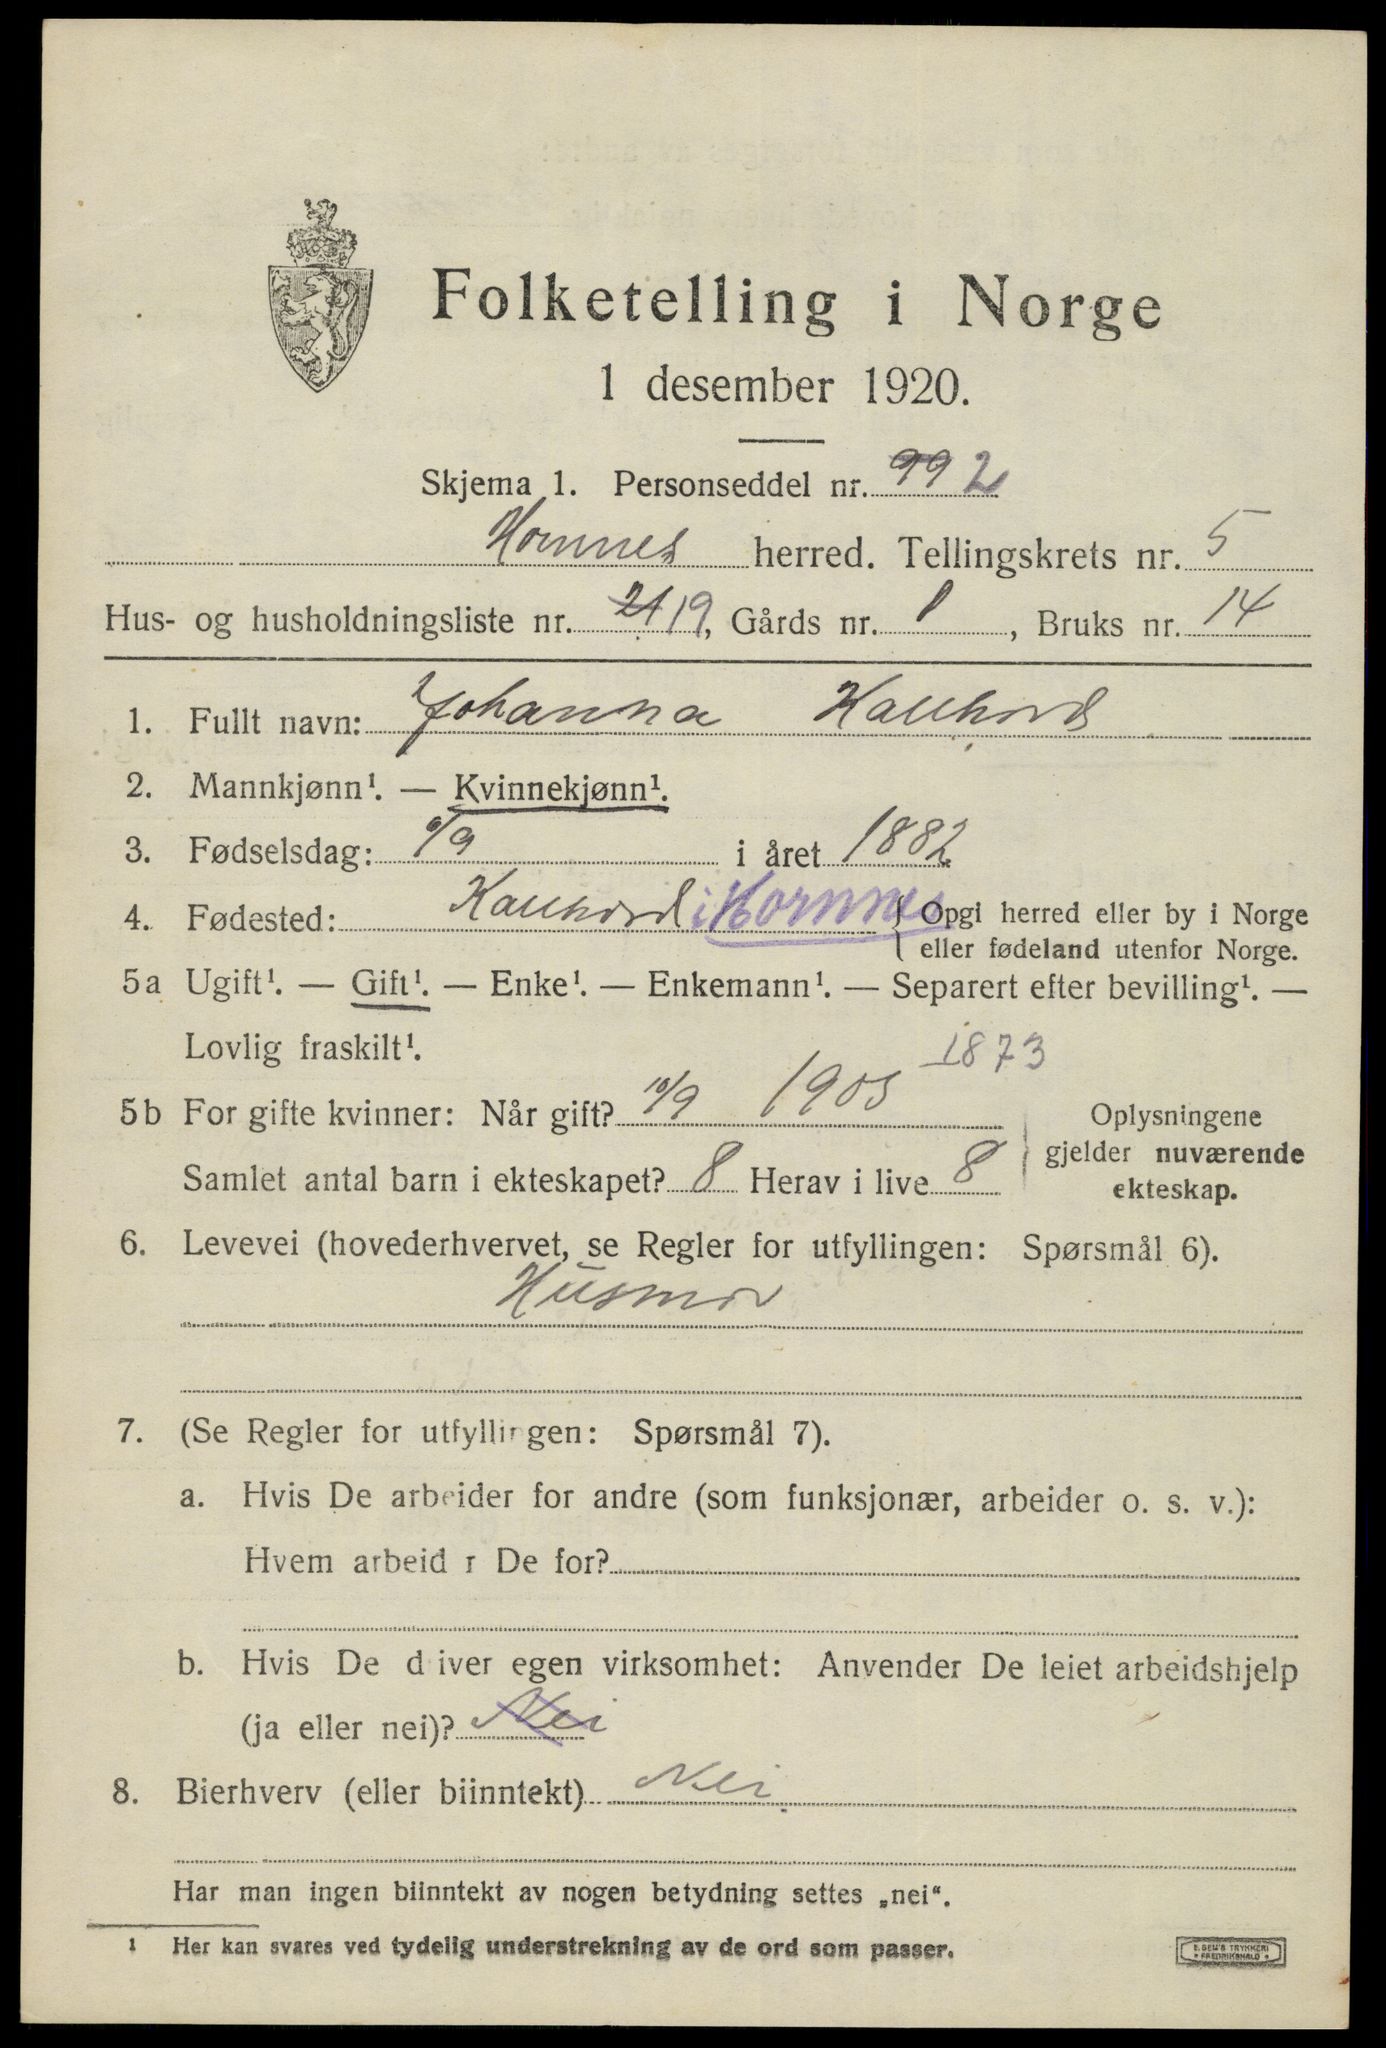 Folketelling i Norge
1 desember 1920.
Skjema 1. Personseddel nr. 99 2
Hornnes herred. Tellingskrets nr. 5
Hus- og husholdningsliste nr. 21 19, Gårds nr. 1, Bruks nr. 14
1. Fullt navn: Johanna Kallhovd
2. Mannkjønn¹. — Kvinnekjønn¹.
3. Fødselsdag: 6/9 i året 1882
4. Fødested: Kallhovd i Hornnes { Opgi herred eller by i Norge
eller fødeland utenfor Norge.
5a Ugift¹. — Gift¹. — Enke¹. — Enkemann¹. — Separert efter bevilling¹. —
Lovlig fraskilt¹.
1873
5b For gifte kvinner: Når gift? 10/9 1905
Samlet antal barn i ekteskapet? 8 Herav i live 8
Oplysningene
gjelder nuværende
ekteskap.
6. Levevei (hovederhvervet, se Regler for utfyllingen: Spørsmål 6).
Husmor
7. (Se Regler for utfyllingen: Spørsmål 7).
a. Hvis De arbeider for andre (som funksjonær, arbeider o. s. v.):
Hvem arbeid r De for?
b. Hvis De d iver egen virksomhet: Anvender De leiet arbeidshjelp
(ja eller nei)? Nei
8. Bierhverv (eller biinntekt) Nei
Har man ingen biinntekt av nogen betydning settes „nei“.
¹ Her kan svares ved tydelig understrekning av de ord som passer.
E. SEM'S TRYKKERI
FREDRIKSHALD